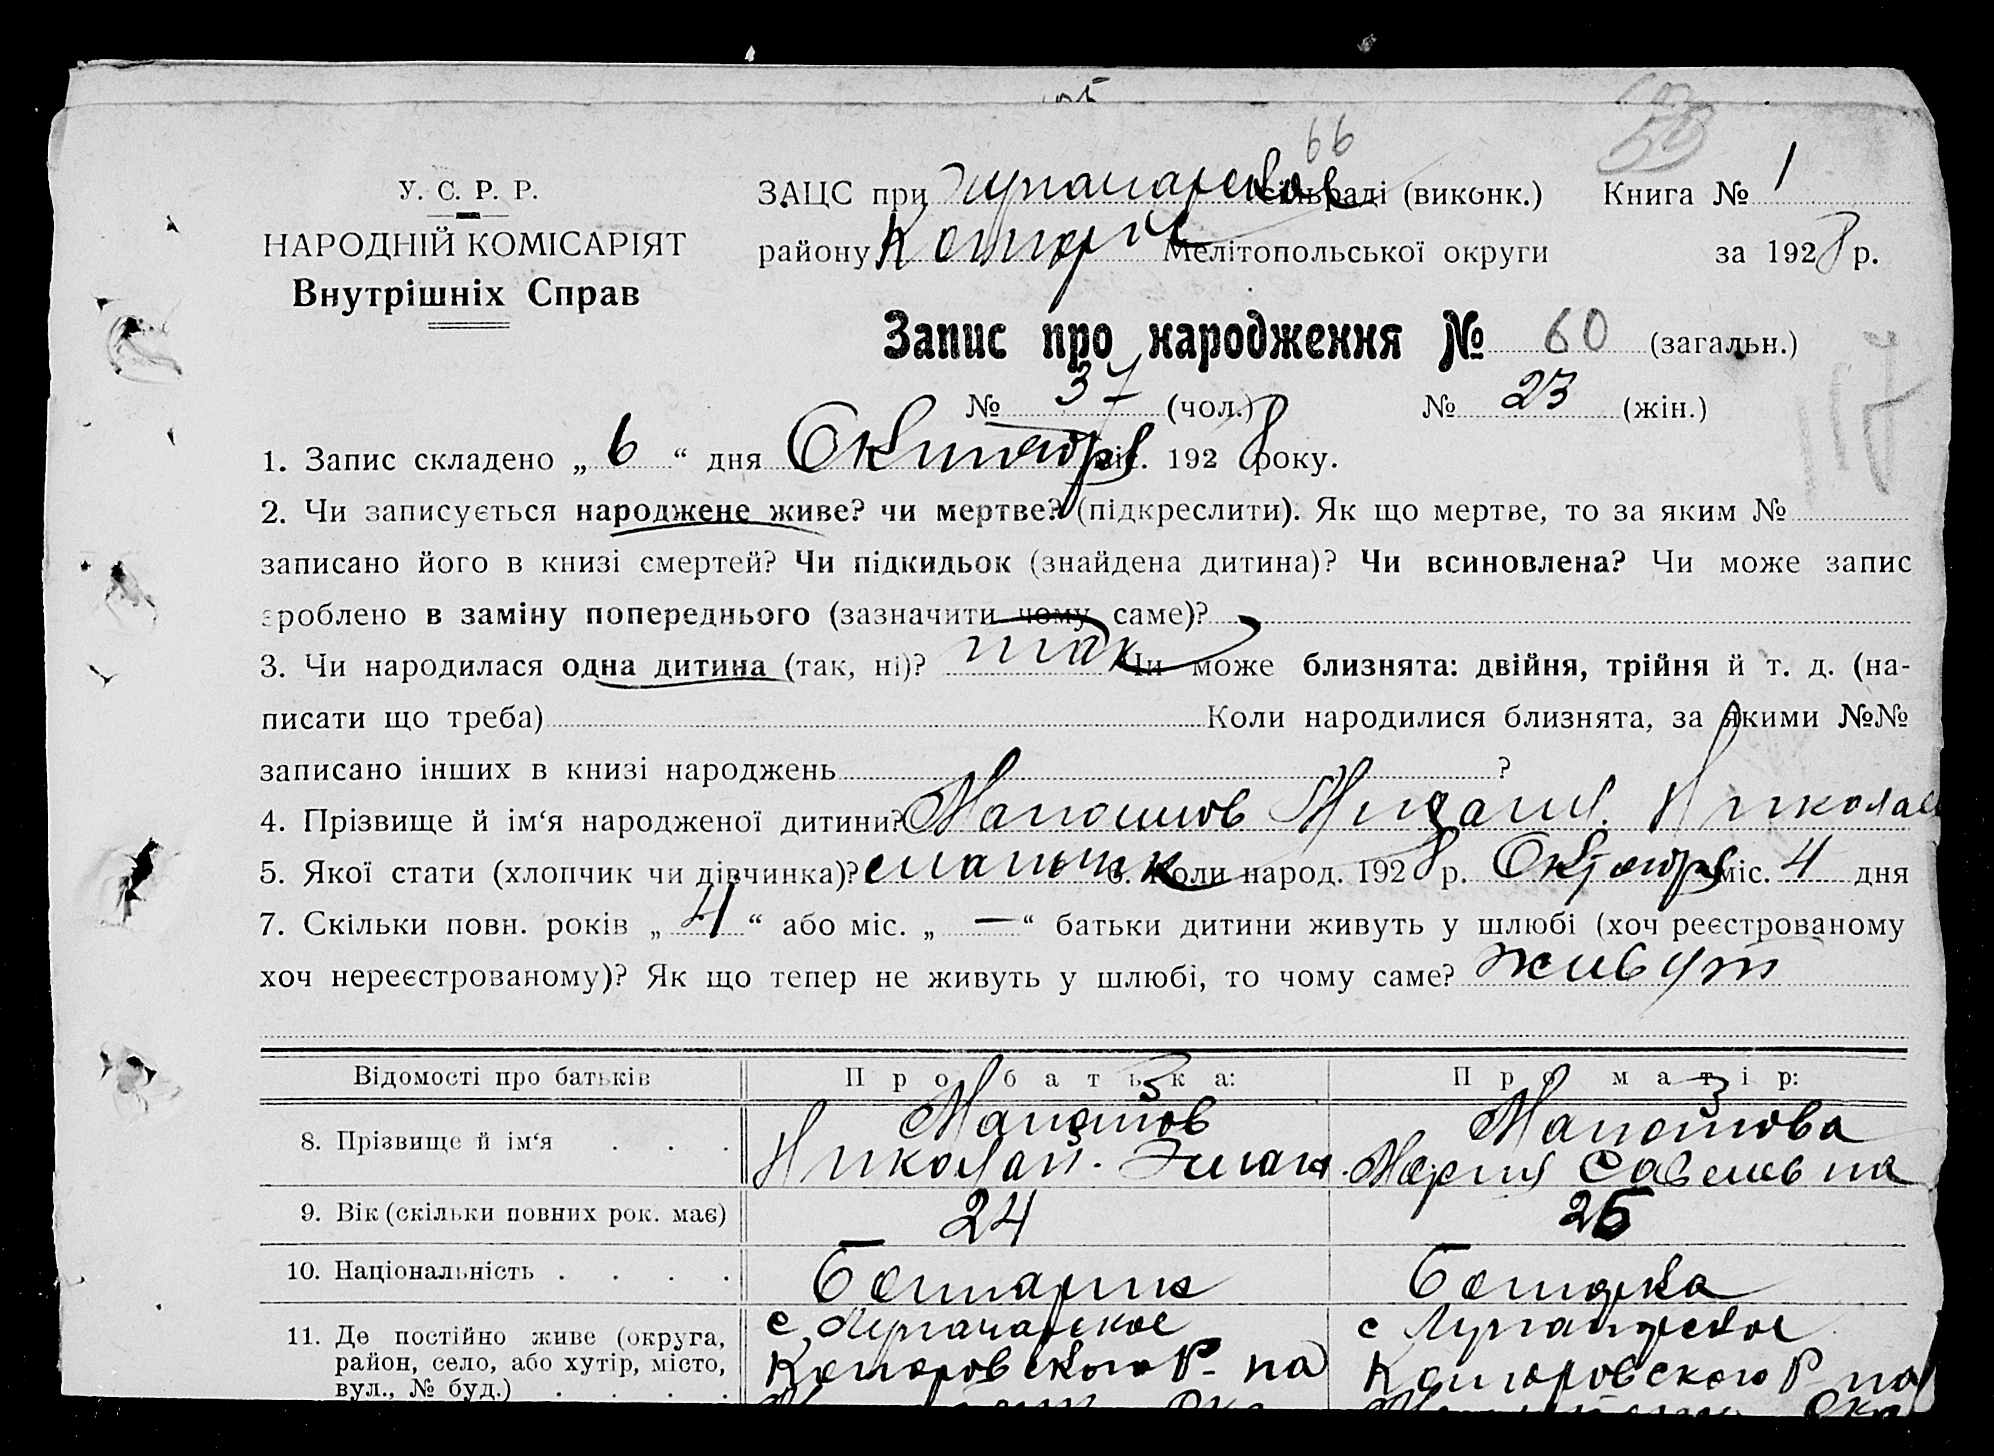 66
У. С. Р. Р.
НАРОДНІЙ КОМІСАРІЯТ
Внутрішніх Справ
ЗАЦС при сільраді (виконк.) Книга № 1
району Мелітопольської округи за 1928 р.
Запис про народження № 60 (загальн.)
№ 37 (чол.) № 23 (жін.)
117
1. Запис складено „ 6 “ дня Октября міс. 1928 року.
2. Чи записується народжене живе? чи мертве? (підкреслити). Як що мертве, то за яким №
записано його в книзі смертей? Чи підкидьок (знайдена дитина)? Чи всиновлена? Чи може запис
зроблено в заміну попереднього (зазначити чому саме)?
3. Чи народилася одна дитина (так, ні)? так Чи може близнята: двійня, трійня й т. д. (на-
писати що треба) Коли народилися близнята, за якими №№
записано інших в книзі народжень ?
4. Прізвище й ім‘я народженої дитини? Михаил Николае
5. Якої стати (хлопчик чи дівчинка)? мальчик 6. Коли народ. 1928 р. Октября міс. 4 дня
7. Скільки повн. років „ 4 “ або міс. „ — “ батьки дитини живуть у шлюбі (хоч реєстрованому
хоч нереєстрованому)? Як що тепер не живуть у шлюбі, то чому саме? живут
Відомості про батьків Про батька: Про матір:
8. Прізвище й ім‘я . . . Николай Мария Савельевна
9. Вік (скільки повних рок. має) 24 25
10. Національність . . . . Болгарин Болгарка
11. Де постійно живе (округа,
район, село, або хутір, місто,
вул., № буд.) . . . .
с
с
р-на